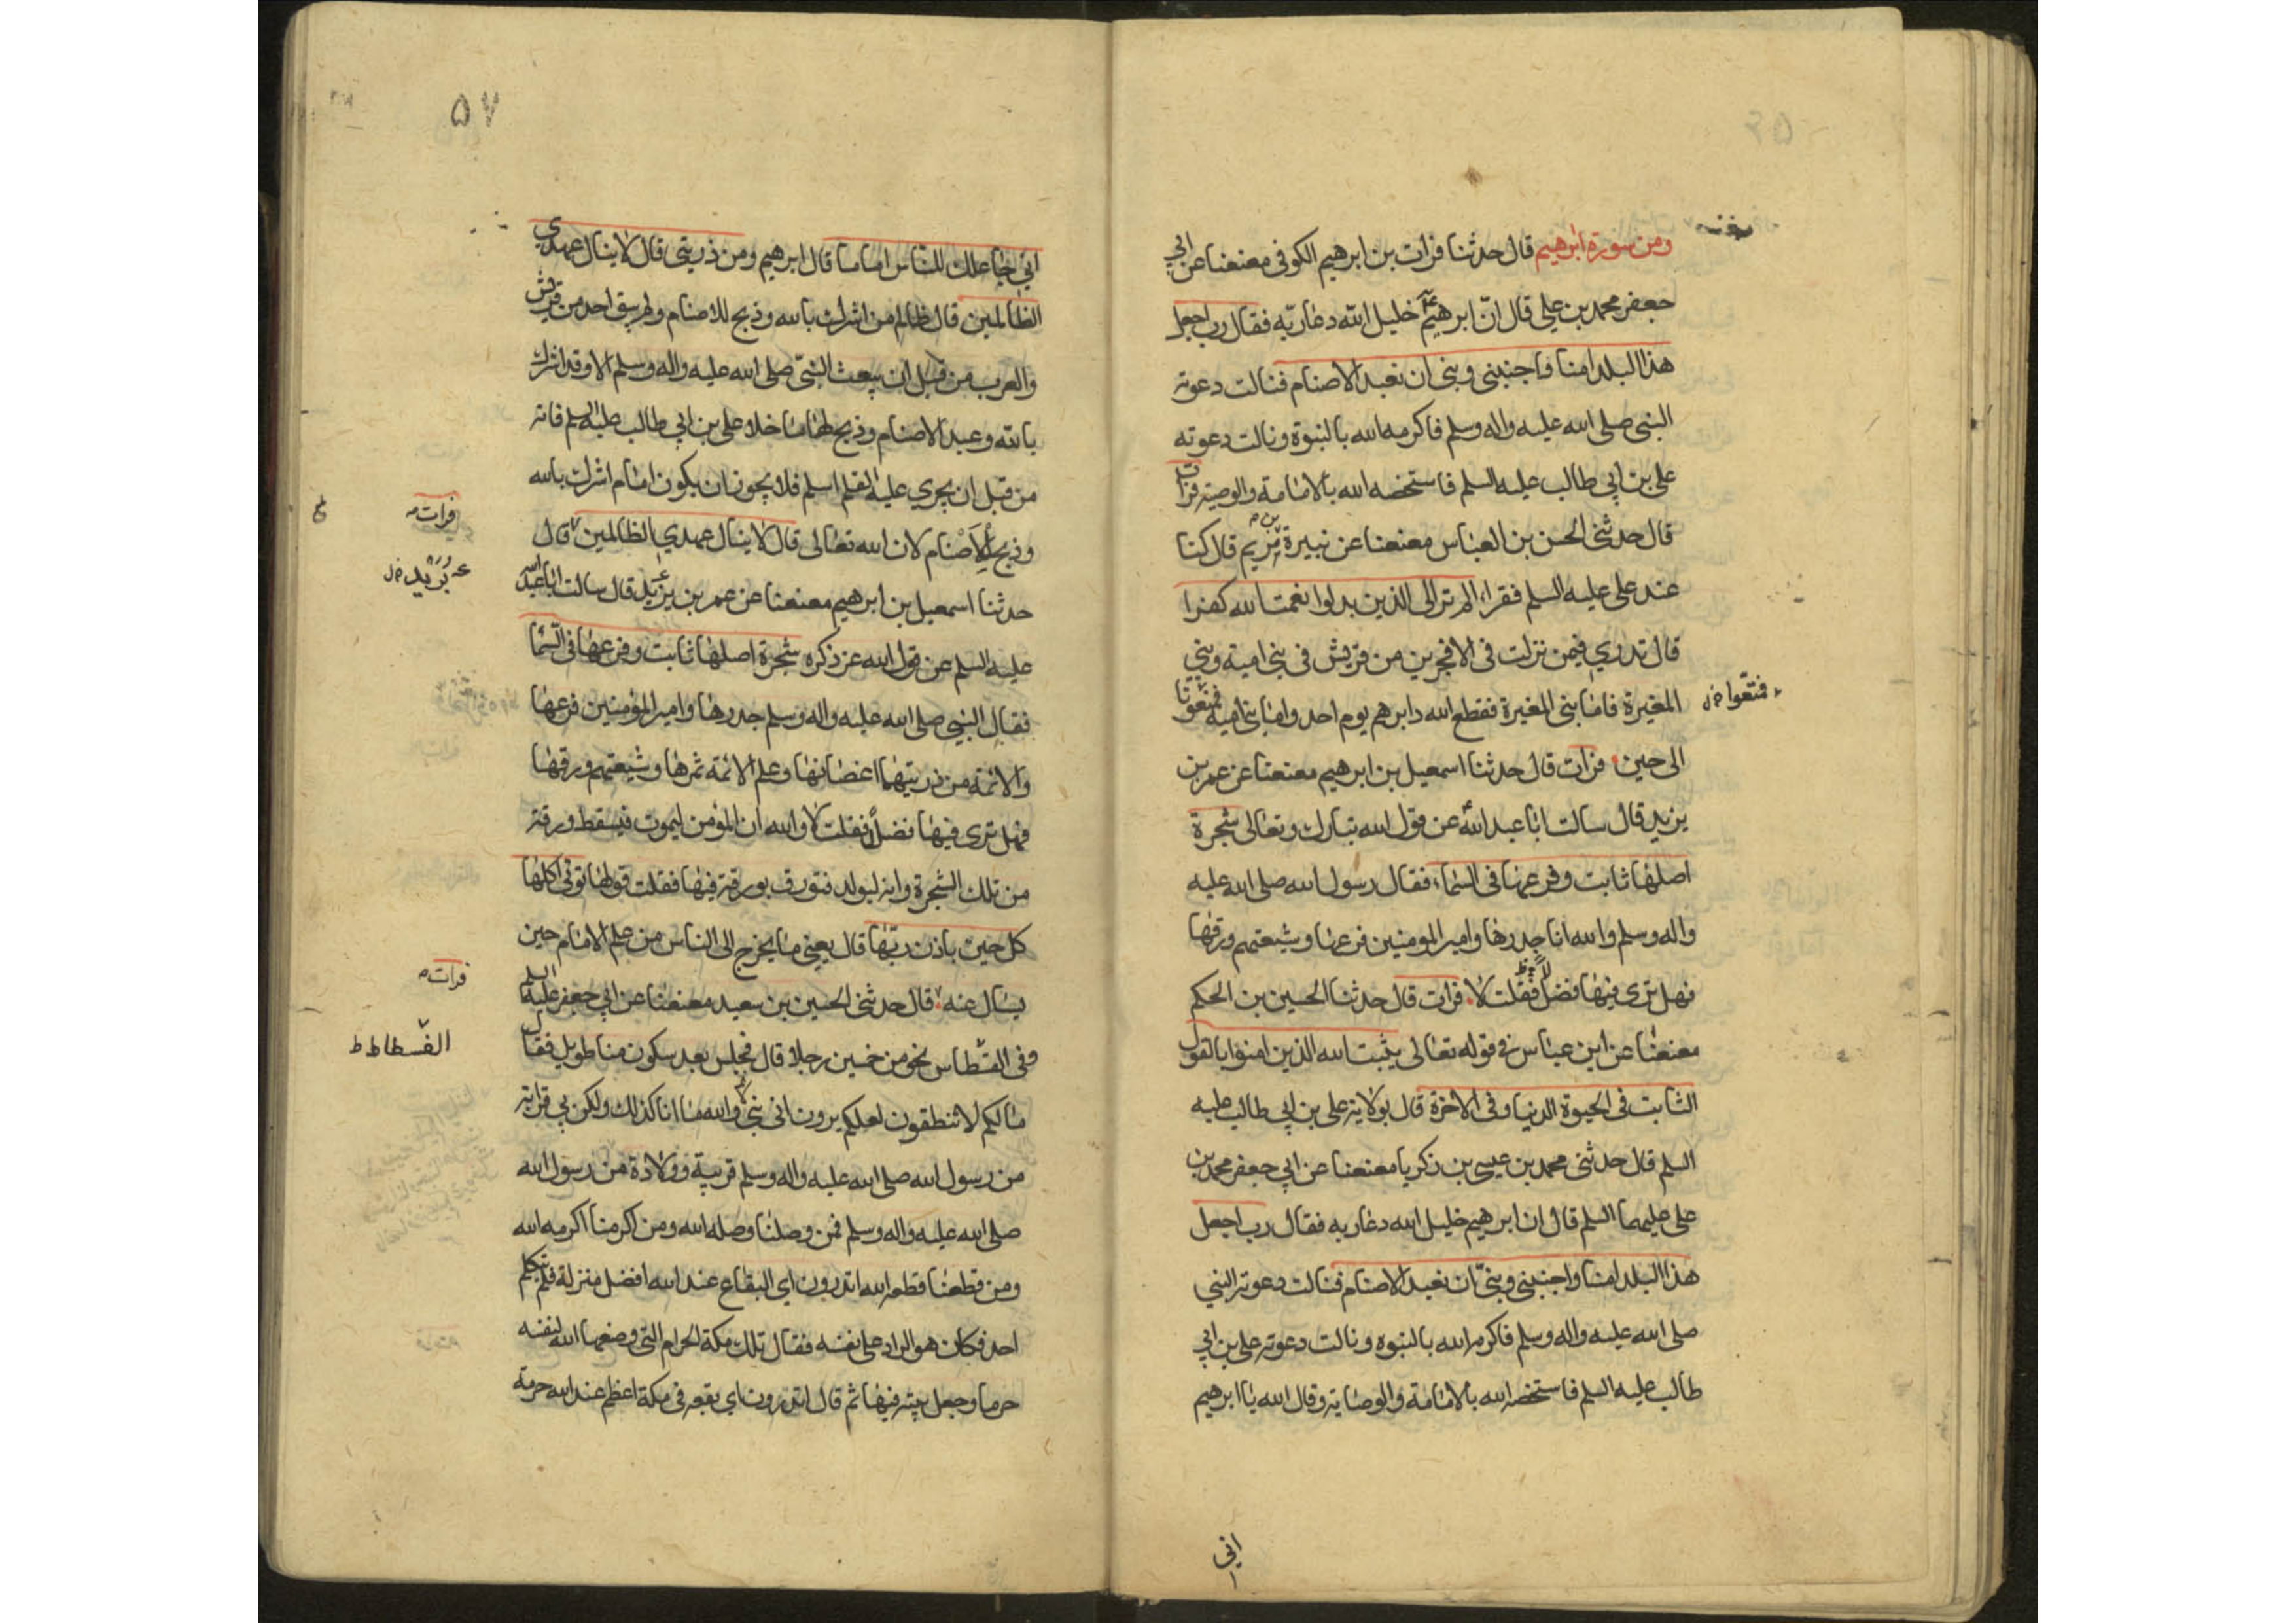 ومن سورة ابرهيم قال حدثنا فرات بن ابرهيم الكوفى معنعنا عن ابي
جعفر محمد بن علي قال انّ ابرهيم خليل الله دعا ربّه فقال رب اجعل
هذا البلد امنا واجنبنى وبنى ان نعبد الاصنام فنالت دعوته
النبى صلى الله عليه واله وسلم فاكرمه الله بالنبوة ونالت دعوته
على بن ابي طالب عليه السلم فاستخصه الله بالامامة والوصية فرات
قال حدثنى الحسن بن العباس معنعنا عن نبيرة بن مريم قال كنا
عند على عليه السلم فقرا الم تر الى الذين بدلوا نعمت الله كفرا
قال تدري فيمن نزلت فى الافجرين من قريش فى بنى امية وبني
المغيرة فاما بنى المغيرة فقطع الله دابرهم يوم احد واما بنى امية فمتعوا
فمتّعوا
الى حين فرات قال حدثنا اسمعيل بن ابرهيم معنعنا عن عمر بن
يزيد قال سالت ابا عبد الله عن قول الله تبارك وتعالى شجرة
اصلها ثابت وفرعها فى السماء فقال رسول الله صلى الله عليه
واله وسلم والله انا جدرها وامير المومنين فرعها وشيعتهم ورقها
فهل ترى فيها فضلا فقلت لا فرات قال حدثنا الحسين بن الحكم
معنعنا عن ابن عباس فى قوله تعالى يثبت الله الذين امنوا بالقول
الثابت فى الحيوة الدنيا وفى الاخرة قال بولاية على بن ابي طالب عليه
السلم قال حدثنى محمد بن عيسى بن زكريا معنعنا عن ابي جعفر محمد بن
على عليهما السلم قال ان ابرهيم خليل الله دعا ربه فقال رب اجعل
هذا البلد امنا واجنبنى وبنىّ ان نعبد الاصنام فنالت دعوته النبي
صلى الله عليه واله وسلم فاكرمه الله بالنبوه ونالت دعوته على بن ابي
طالب عليه السلم فاستخصه الله بالامامة والوصاية وقال الله يا ابرهيم
اني
٥٧
اني جاعلك للناس اماما قال ابرهيم ومن ذريتى قال لا ينال عهدي
الظالمين قال ظالم من اشرك بالله وذبح للاصنام ولم يبق احد من قريش
والعرب من قبل ان يبعث النبىّ صلى الله عليه واله وسلم الا وقد اشرك
بالله وعبد الاصنام وذبح لها ما خلا على بن ابي طالب عليه السلم فانه
من قبل ان يجري عليه القلم اسلم فلا يجوز ان يكون امام اشرك بالله
فرات
وذبح للاصنام لان الله تعالى قال لا ينال عهدي الظالمين قال
حدثنا اسمعيل بن ابرهيم معنعنا عن عمر بن يزيد قال سالت ابا عبد الله
عليه السلم عن قول الله عز ذكره شجرة اصلها ثابت وفرعها فى السما
فقال النبي صلى الله عليه واله وسلم جدرها وامير المؤمنين فرعها
والائمة من ذريتهما اغصانها وعلم الائمة ثمرها وشيعتهم ورقها
فهل ترى فيها فضلاً فقلت لا والله ان المؤمن ليموت فيسقط ورقة
من تلك الشجرة وانه ليولد فتورق بورقة فيها فقلت قولها تؤتى اكلها
كل حين باذن ربّها قال يعني ما يخرج الى الناس من علم الامام حين
فرات
يسال عنه قال حدثنى الحسين بن سعيد معنعنا عن ابي جعفر عليه السلم
وفى القسطاس نحو من خمسين رجلا قال فجلس بعد سكون منا طويل فقال
الفسطاط ط
ما لكم لا تنطقون لعلكم يرون انى نبي والله ما انا كذلك ولكن بي قرابة
من رسول الله صلى الله عليه واله وسلم قريبة وولادة من رسول الله
صلى الله عليه واله وسلم فمن وصلنا وصله الله ومن اكرمنا اكرمه الله
ومن قطعنا قطعه الله اتدرون اي البقاع عند الله افضل منزلة فلم يتكلم
احد فكان هو الراد على نفسه فقال تلك مكة الحرام التى وضعها الله لنفسه
حرما وجعل بيته فيها ثم قال اتدرون اي بقعه فى مكة اعظم عند الله حرمة